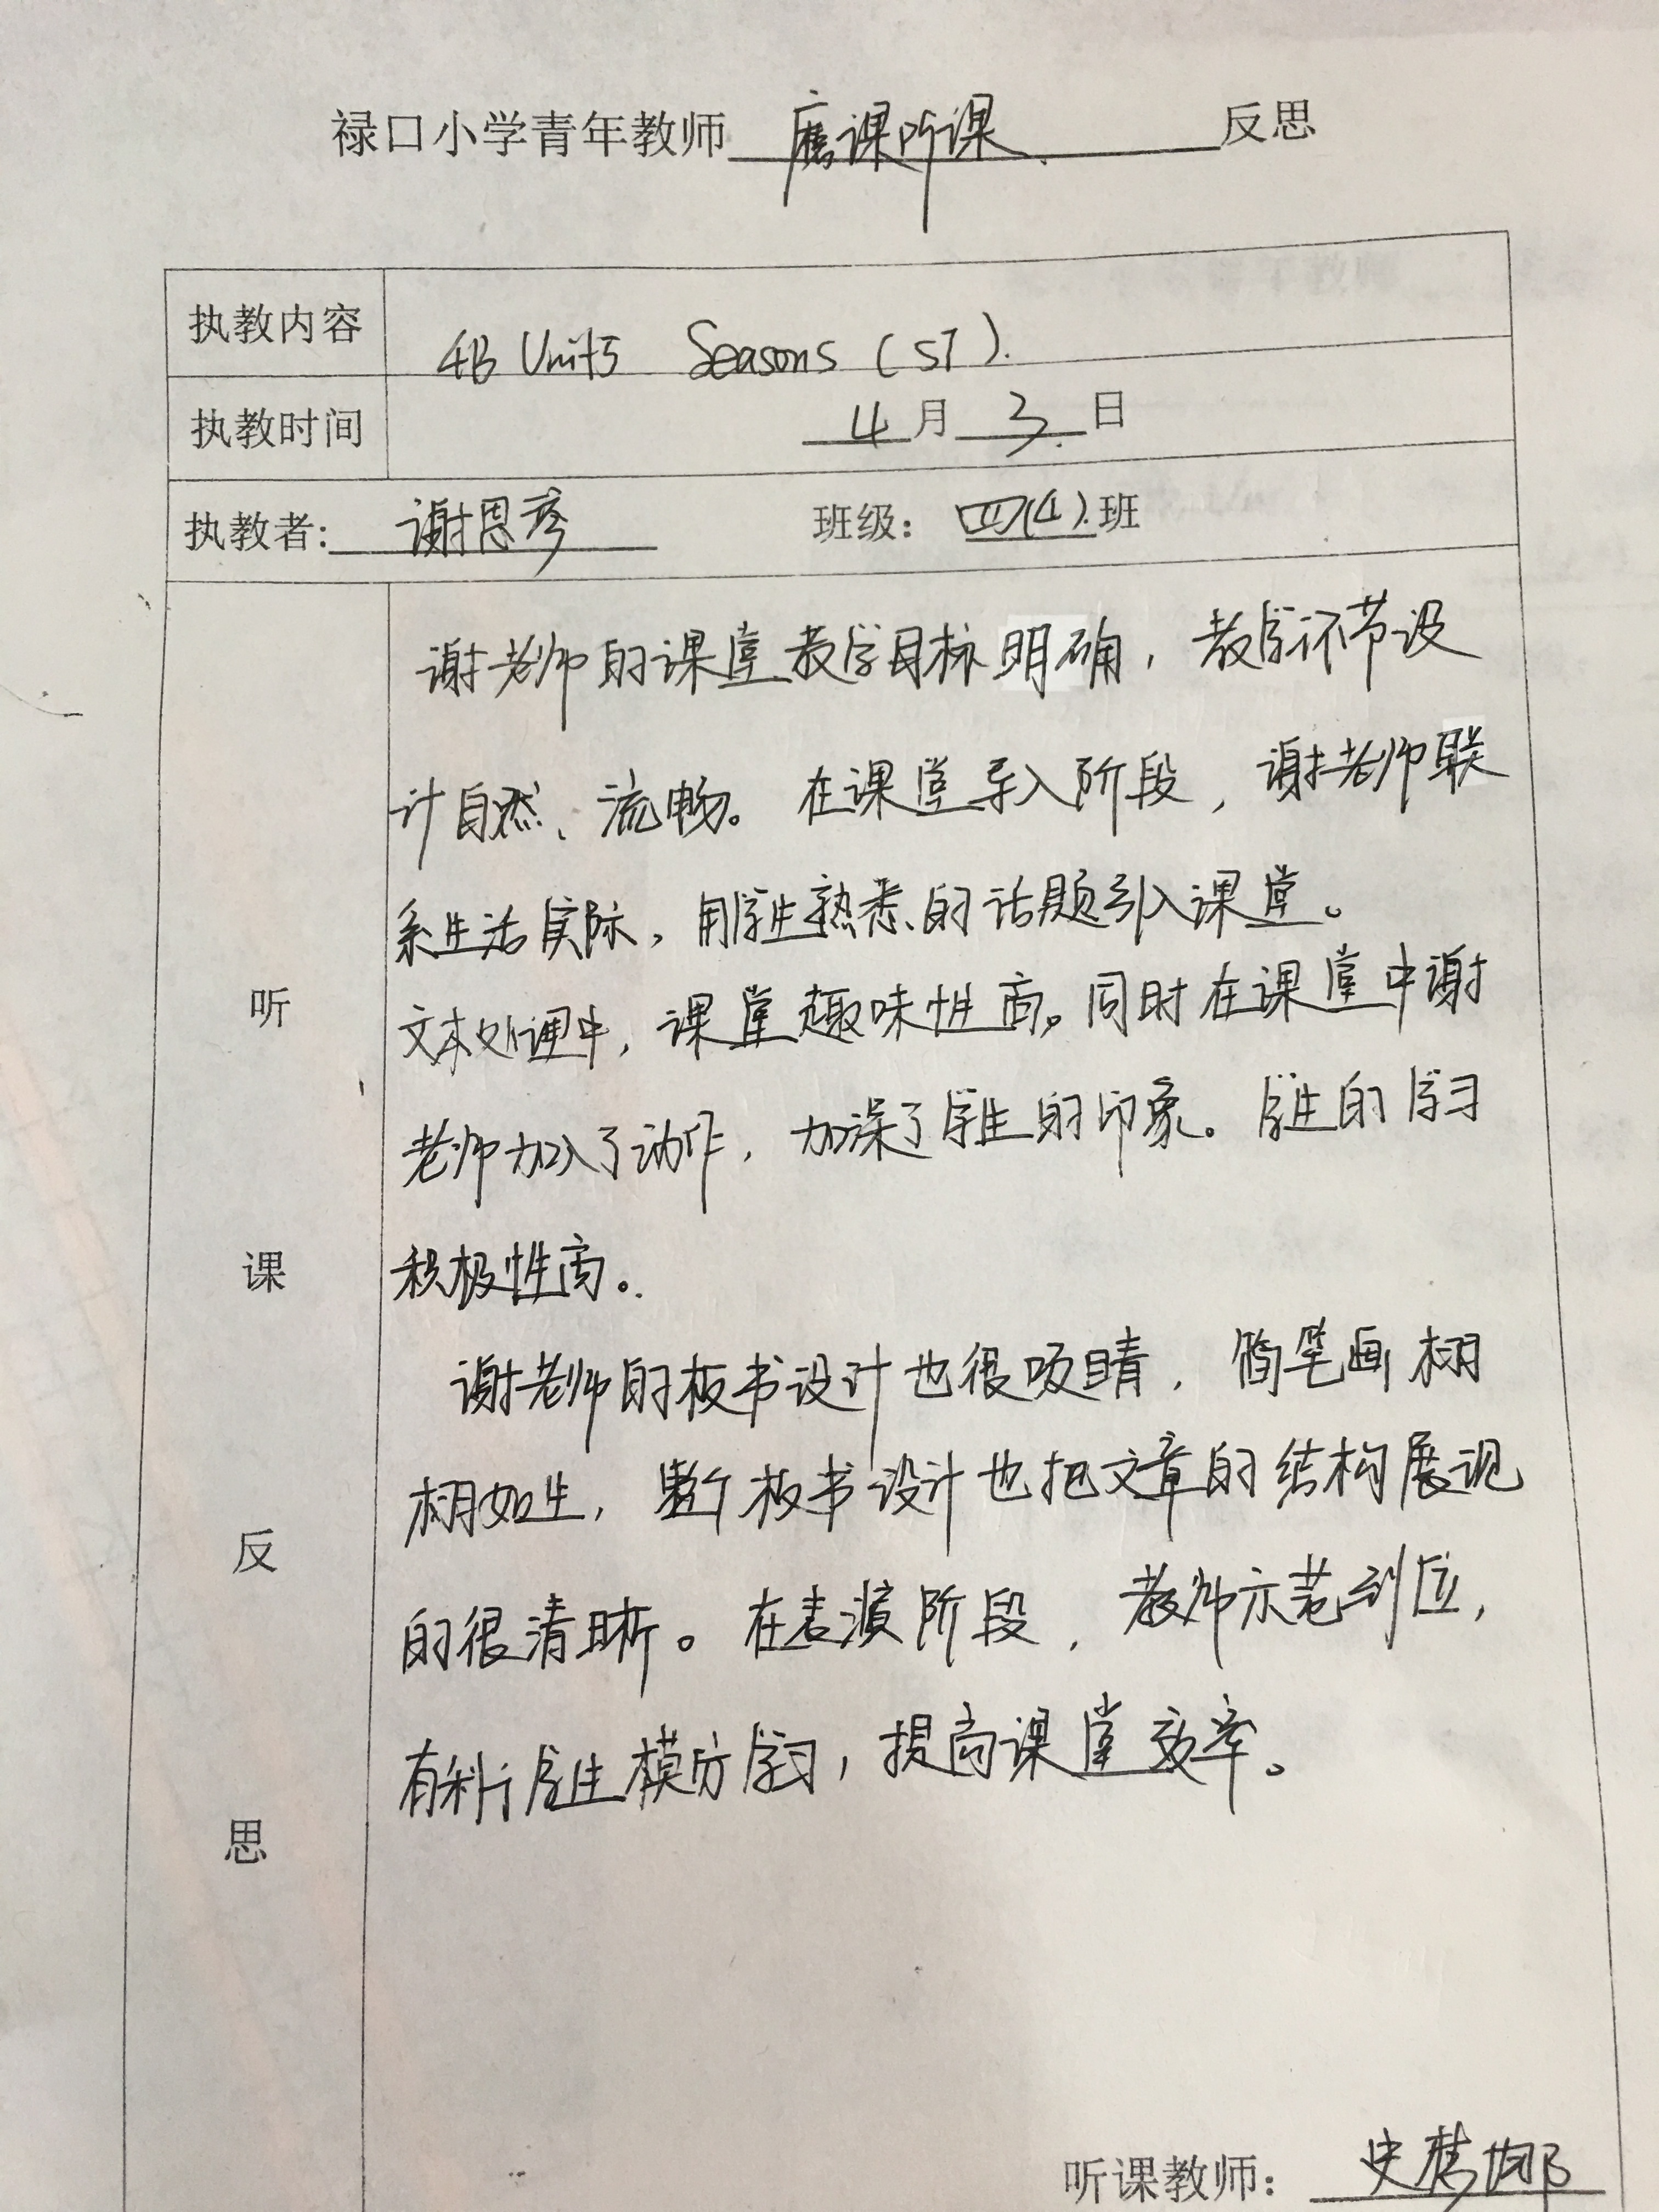 禄口小学青年教师 磨课听课 反思
执教内容 4B Unit5 Seasons (ST).
执教时间 4月3日
执教者: 谢恩彦 班级: 四(4)班
听课反思
谢老师的课堂教学目标明确，教学环节设
计自然、流畅。在课堂导入阶段，谢老师联
系生活实际，用学生熟悉的话题引入课堂。
文本处理中，课堂趣味性高。同时在课堂中谢
老师加入了动作，加深了学生的印象。学生的学习
积极性高。
谢老师的板书设计也很吸睛，简笔画栩
栩如生，整个板书设计也把文章的结构展现
的很清晰。在表演阶段，教师示范到位，
有利于学生模仿学习，提高课堂效率。
听课教师: 史梦娜